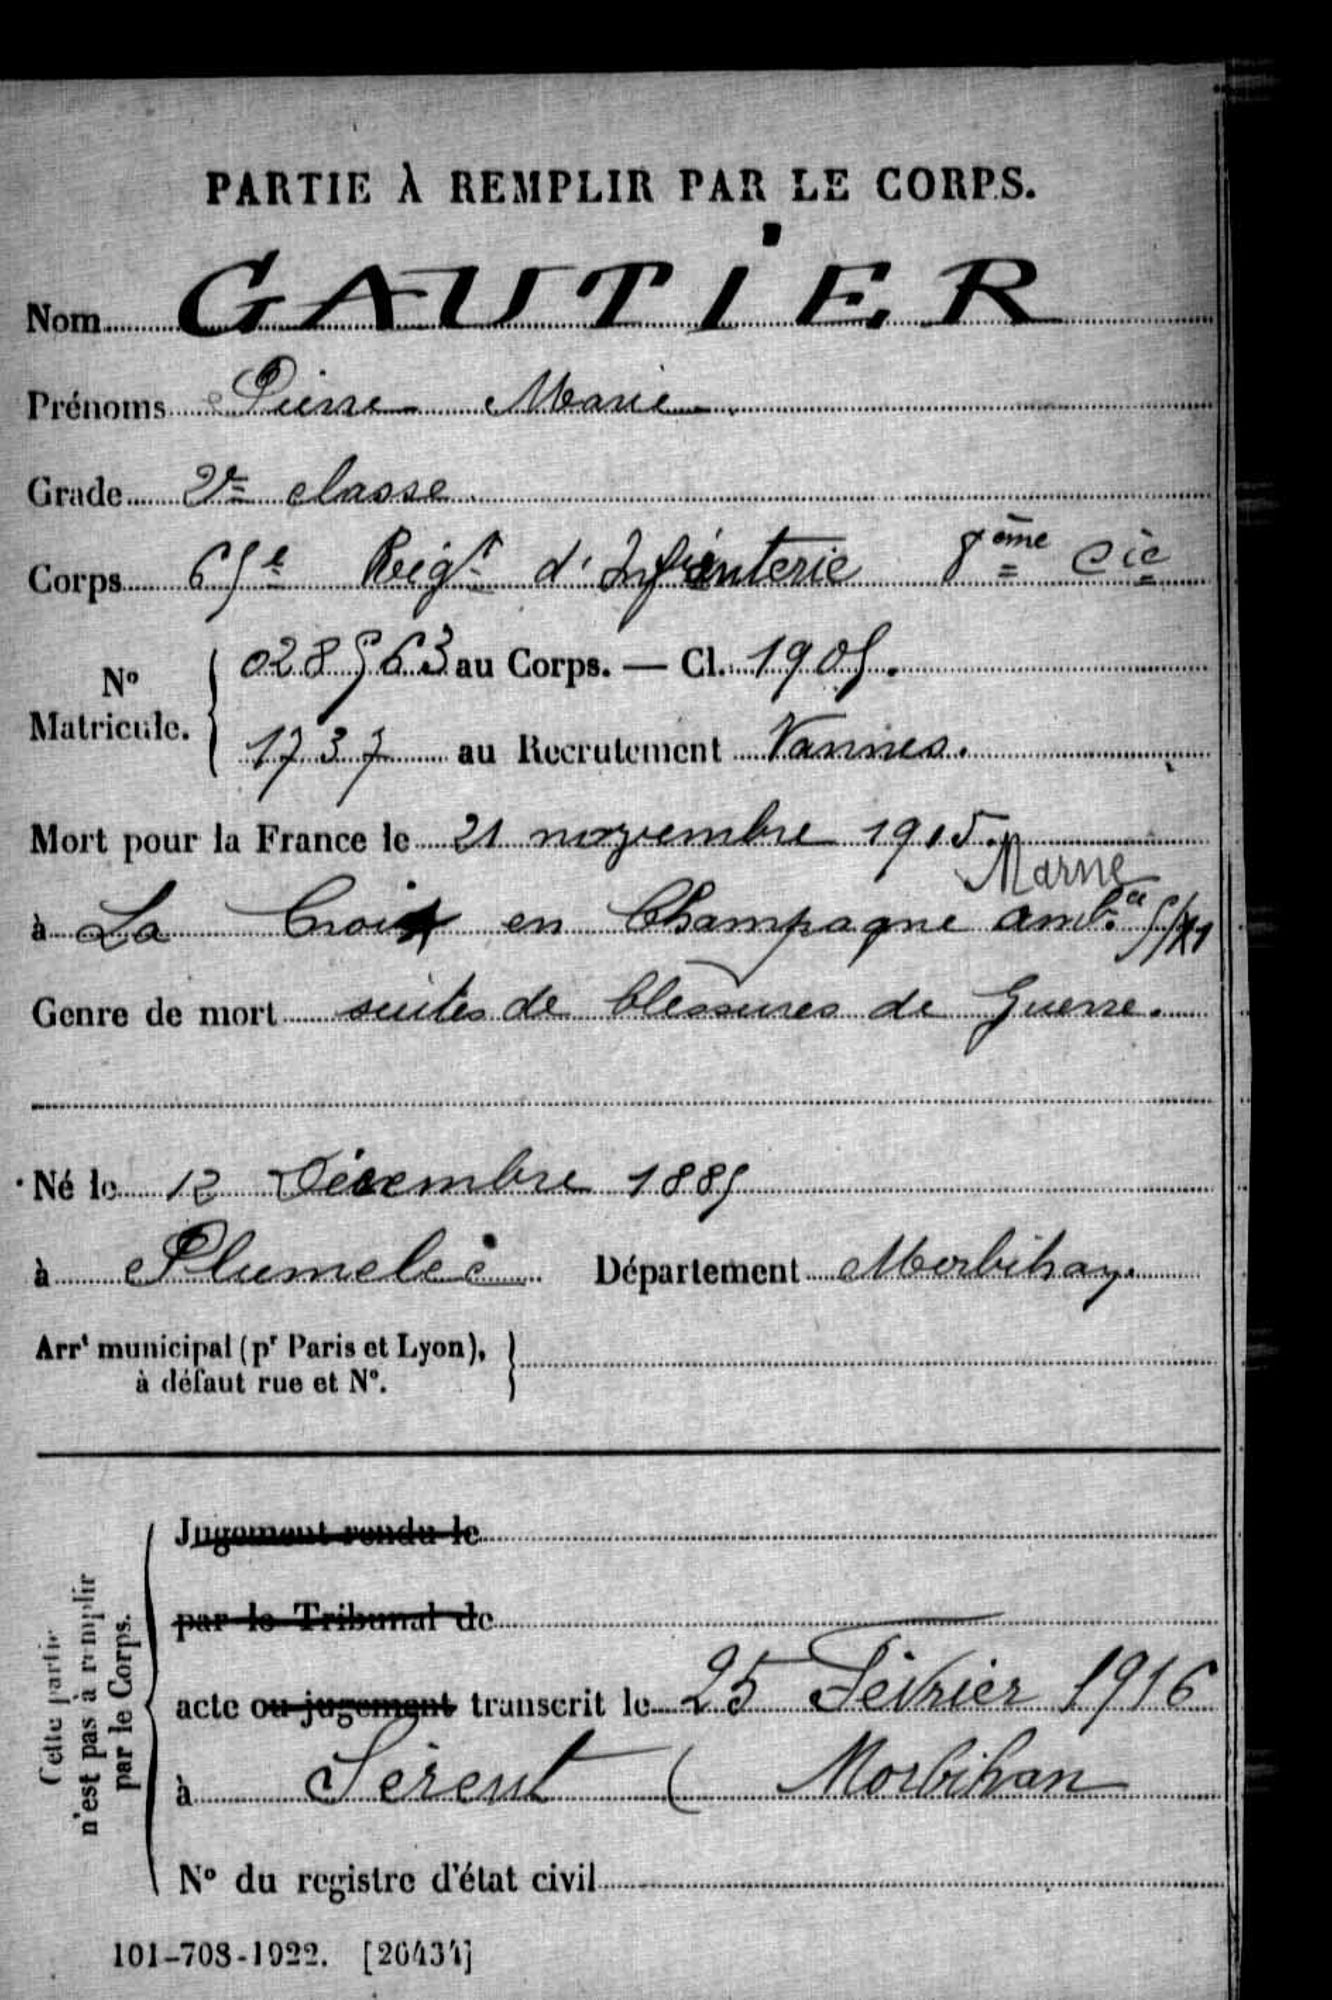 PARTIE À REMPLIR PAR LE CORPS.
Nom GAUTIER
Prénoms Pierre Marie
Grade 2e classe
Corps 65e Régt d'Infanterie 8ème Cie
No Matricule. 028563 au Corps. — Cl. 1905.
1737 au Recrutement Vannes.
Mort pour la France le 21 novembre 1915.
Marne
à La Croix en Champagne ambce 5/XI
Genre de mort suites de blessures de Guerre.
Né le 12 Décembre 1885
à Plumelec Département Morbihan
Arrt municipal (pr Paris et Lyon),
à défaut rue et No.
Cette partie
n'est pas à remplir
par le Corps.
Jugement rendu le
par le Tribunal de
acte ou jugement transcrit le 25 Février 1916
à Sérent (Morbihan
No du registre d'état civil
101-708-1922. [26434]